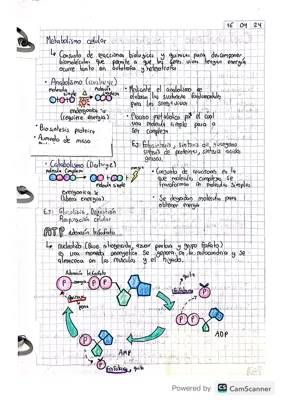 16 04 24
Metabolismo celular
↳ Conjunto de reacciones biologicas y quimicas para descomponer
biomoleculas que permite a que los seres vivos tengan energía
ocurre tanto en autotrofos y heterotrofos
• Anabolismo (construye)
molecula simple molecula compleja
endergonica
(requiere energia)
• Biosintesis proteica
• Aumento de masa
• Mediante el anabolismo se
sustancias fundamentales
para los seres vivos
• Proceso metabolico por el cual
una molecula simple pasa a
ser compleja
Ej: Fotosintesis, sintesis de glucogeno
sintesis de proteinas, sintesis acidos
grasos.
• Catabolismo (Destruye)
molecula compleja
energia
molecula simple
exergonica
(libera energia)
Ej: Glucolisis, Digestión
Respiración celular
• Conjunto de reacciones en la
que moleculas complejas se
transforman en moleculas simples
• Se degradan moleculas para
obtener energia
ATP adenosin trifosfato
↳ nucleotido (Base nitrogenada, azucar pentosa y grupo fosfato)
es una moneda energetica se genera en la mitocondria y se
almacena en los musculos y el higado.
Adenosin trifosfato
P P P
energia
gana
fosforo
P P
ADP
AMP
P
fosforo
Powered by CS CamScanner